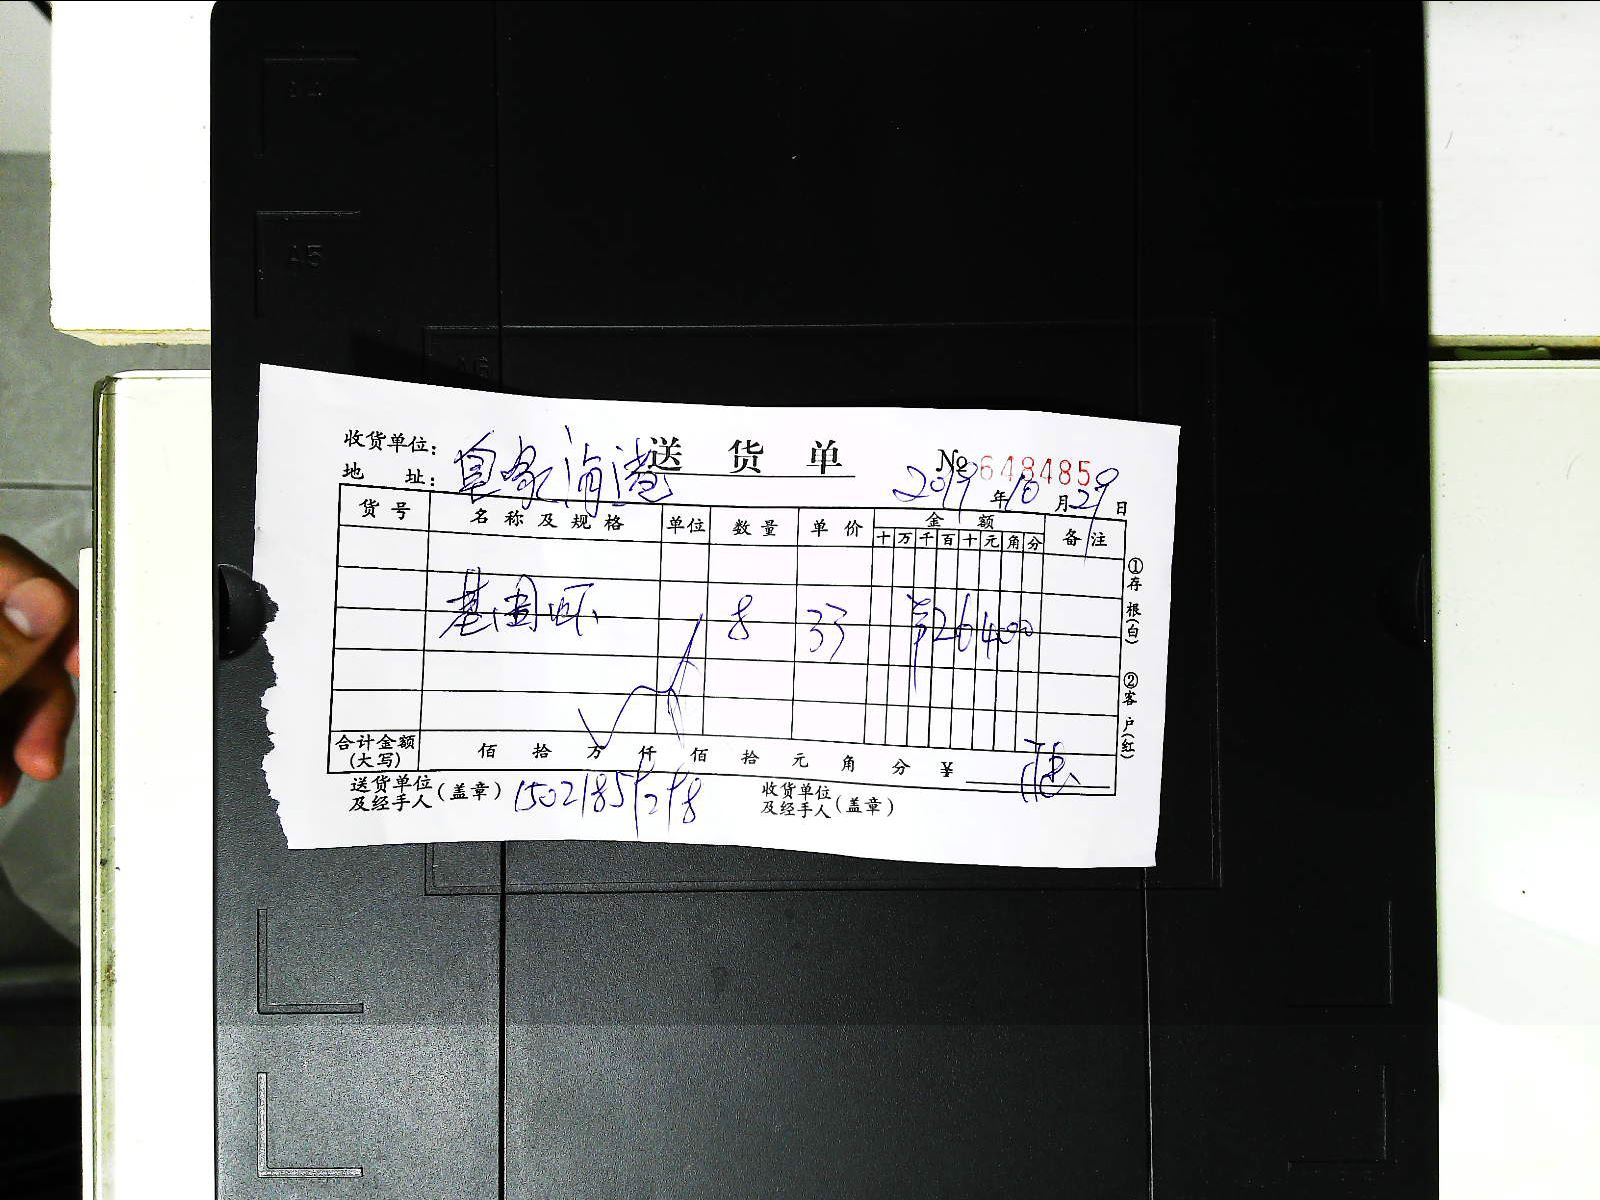 送货单
收货单位：
№6484859
地址：
2019年10月29日
货号 名称及规格 单位 数量 单价 金额 备注
十万千百十元角分
基围虾 8 33 26400
合计金额(大写) 佰拾万仟佰拾元角分 ¥
送货单位及经手人(盖章)
收货单位及经手人(盖章)
①存根(白) ②客户(红)
A5